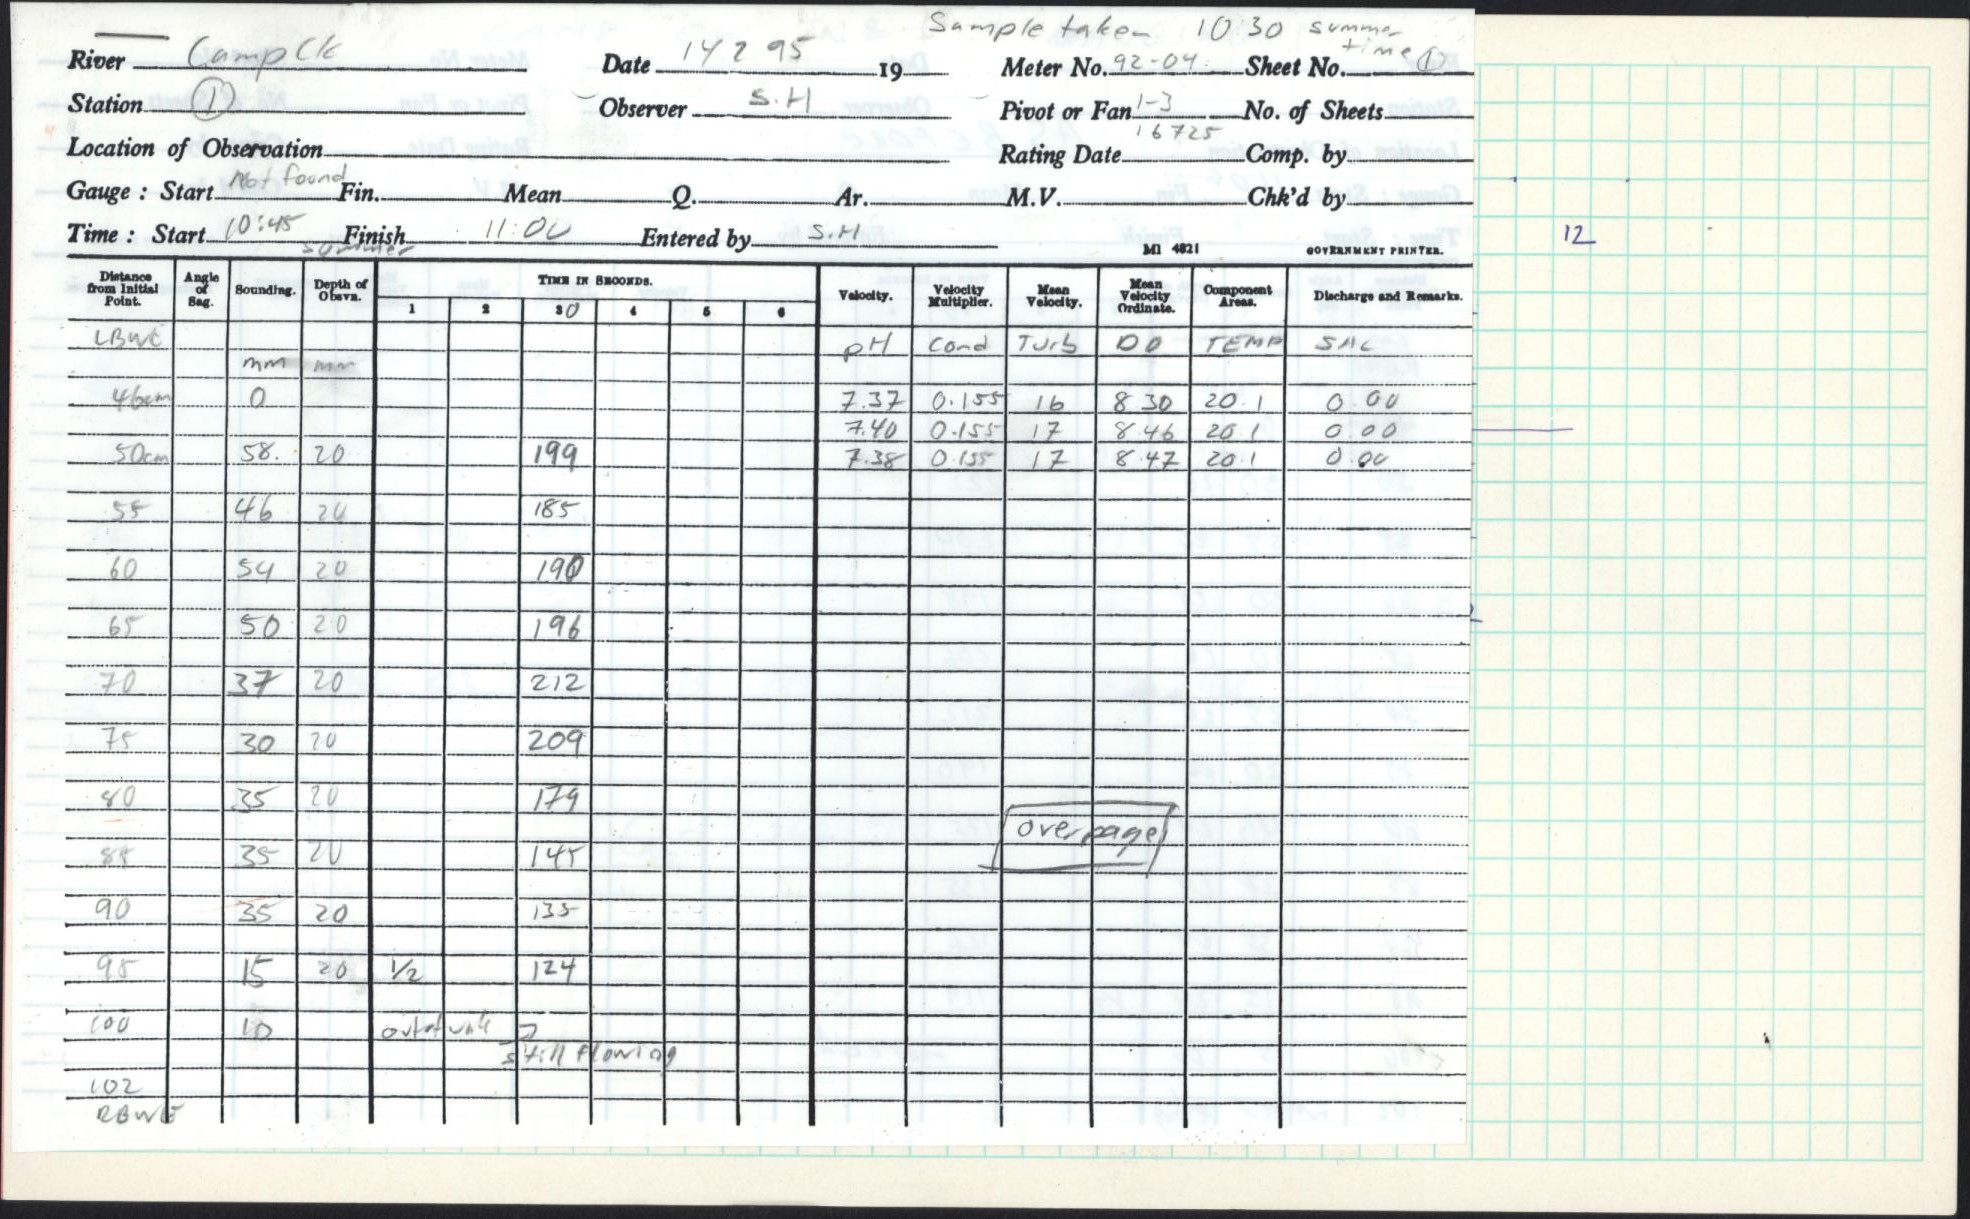 Sample taken 10:30 summer time
River Camp Ck Date 14 2 95 19 Meter No. 92-04 Sheet No. 1
Station 1 Observer S.H Pivot or Fan 1-3 No. of Sheets
16725
Location of Observation Rating Date Comp. by
Gauge : Start Not found Fin. Mean Q. Ar. M.V. Chk'd by
Time : Start 10:45 summer Finish 11:00 Entered by S.H
MI 4821 GOVERNMENT PRINTER.
12
Distance from Initial Point. Angle of Sag. Sounding. Depth of Obsvn. TIME IN SECONDS. Velocity. Velocity Multiplier. Mean Velocity. Mean Velocity Ordinate. Component Areas. Discharge and Remarks.
1 2 30 4 5 6
LBWE pH Cond Turb DO TEMP SAL
mm mm
46cm 0 7.37 0.155 16 8 30 20.1 0.00
7.40 0.155 17 8.46 20.1 0.00
50cm 58. 20 199 7.38 0.155 17 8.47 20.1 0.00
55 46 20 185
60 54 20 190
65 50 20 196
70 37 20 212
75 30 20 209
80 35 20 179
over page
85 35 20 145
90 35 20 135
95 15 20 1/2 124
100 10 out of
still flowing
102
RBWE